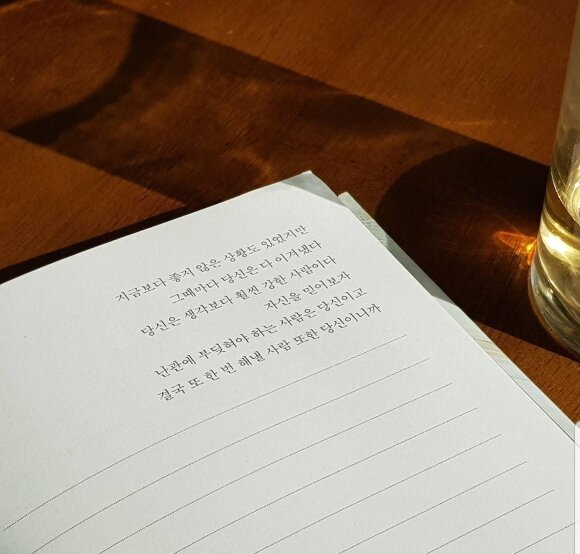 지금보다 좋지 않은 상황도 있었지만
그때마다 당신은 다 이겨냈다
당신은 생각보다 훨씬 강한 사람이다
자신을 믿어보자
난관에 부딪혀야 하는 사람은 당신이고
결국 또 한 번 해낼 사람 또한 당신이니까